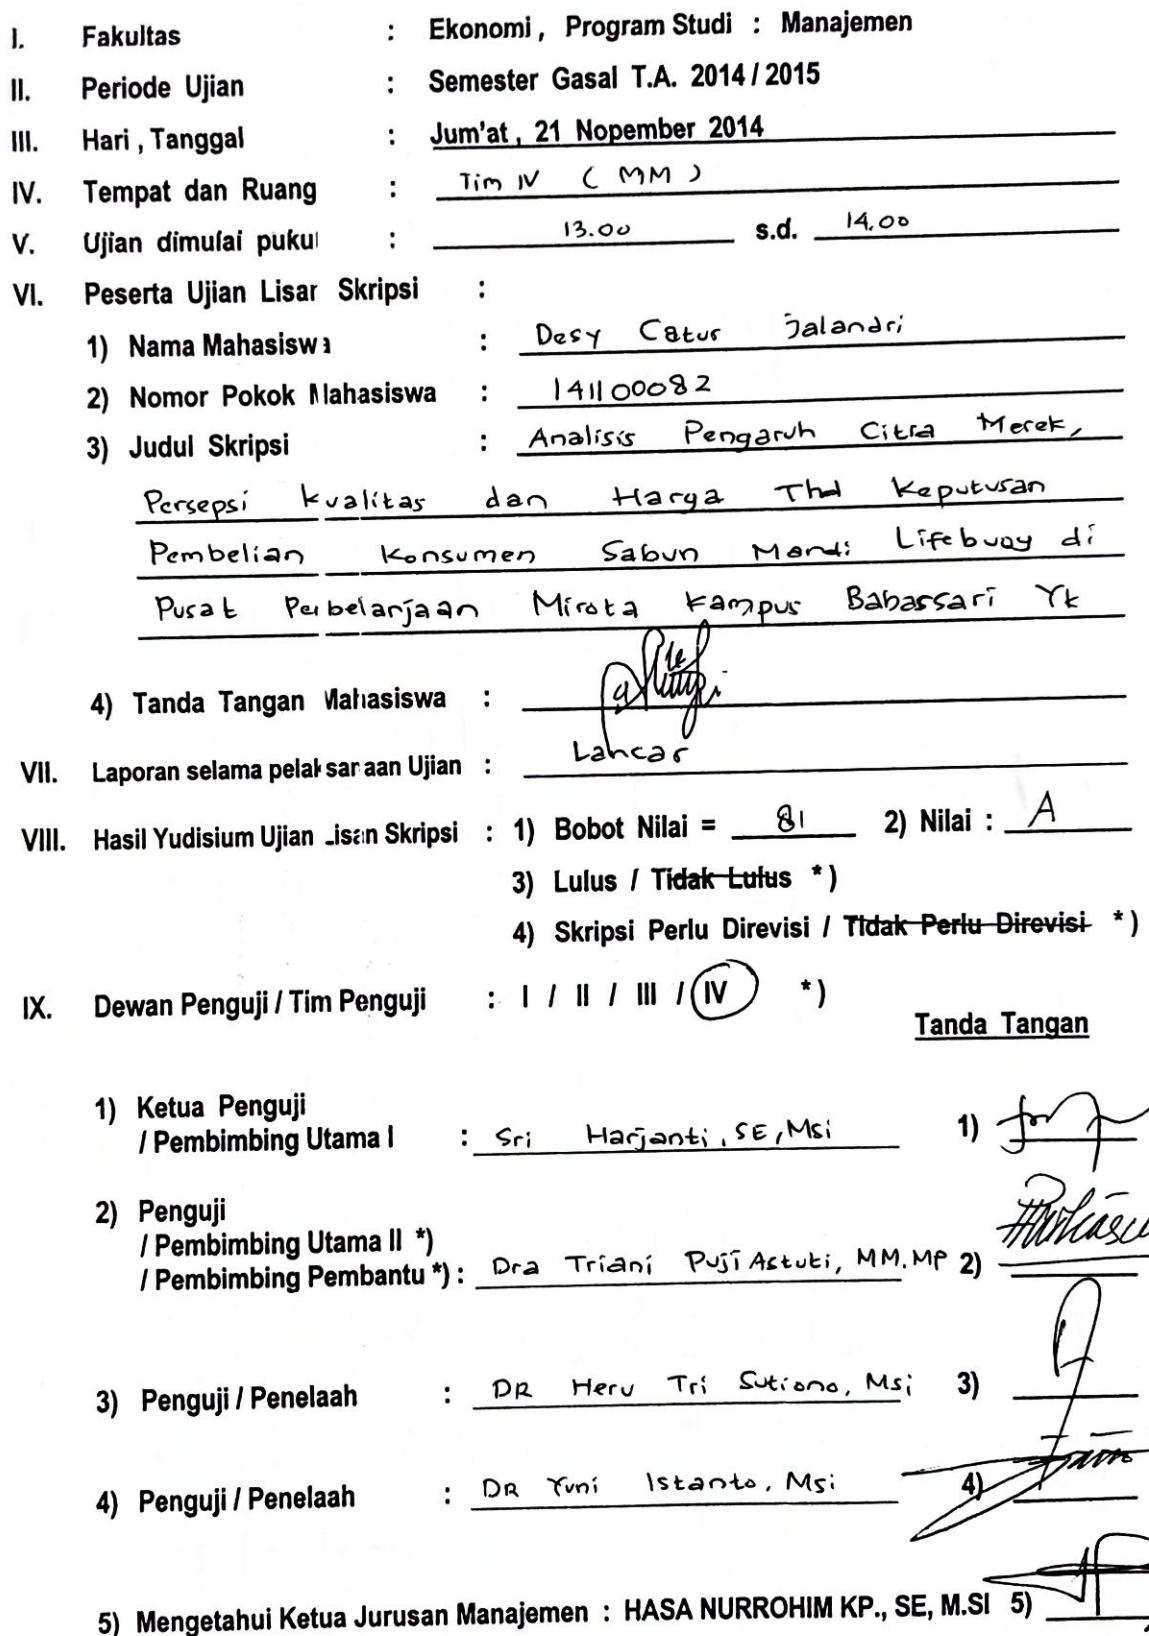 I. Fakultas : Ekonomi, Program Studi : Manajemen
II. Periode Ujian : Semester Gasal T.A. 2014 / 2015
III. Hari, Tanggal : Jum'at, 21 Nopember 2014
IV. Tempat dan Ruang : Tim IV ( MM )
V. Ujian dimulai pukul : 13.00 s.d. 14.00
VI. Peserta Ujian Lisan Skripsi :
1) Nama Mahasiswa : Desy Catur Jalandri
2) Nomor Pokok Mahasiswa : 141100082
3) Judul Skripsi : Analisis Pengaruh Citra Merek,
Persepsi kualitas dan Harga Thd Keputusan
Pembelian Konsumen Sabun Mandi Lifebuoy di
Pusat Perbelanjaan Mirota Kampus Babassari Yk
4) Tanda Tangan Mahasiswa :
VII. Laporan selama pelaksanaan Ujian : Lancar
VIII. Hasil Yudisium Ujian Lisan Skripsi : 1) Bobot Nilai = 81 2) Nilai : A
3) Lulus / Tidak Lulus *)
4) Skripsi Perlu Direvisi / Tidak Perlu Direvisi *)
IX. Dewan Penguji / Tim Penguji : I / II / III / IV *)
Tanda Tangan
1) Ketua Penguji
/ Pembimbing Utama I : Sri Harjanti, SE, Msi 1)
2) Penguji
/ Pembimbing Utama II *)
/ Pembimbing Pembantu *) : Dra Triani Puji Astuti, MM.MP 2)
3) Penguji / Penelaah : DR Heru Tri Sutiono, Msi 3)
4) Penguji / Penelaah : DR Yuni Istanto, Msi 4)
5) Mengetahui Ketua Jurusan Manajemen : HASA NURROHIM KP., SE, M.SI 5)